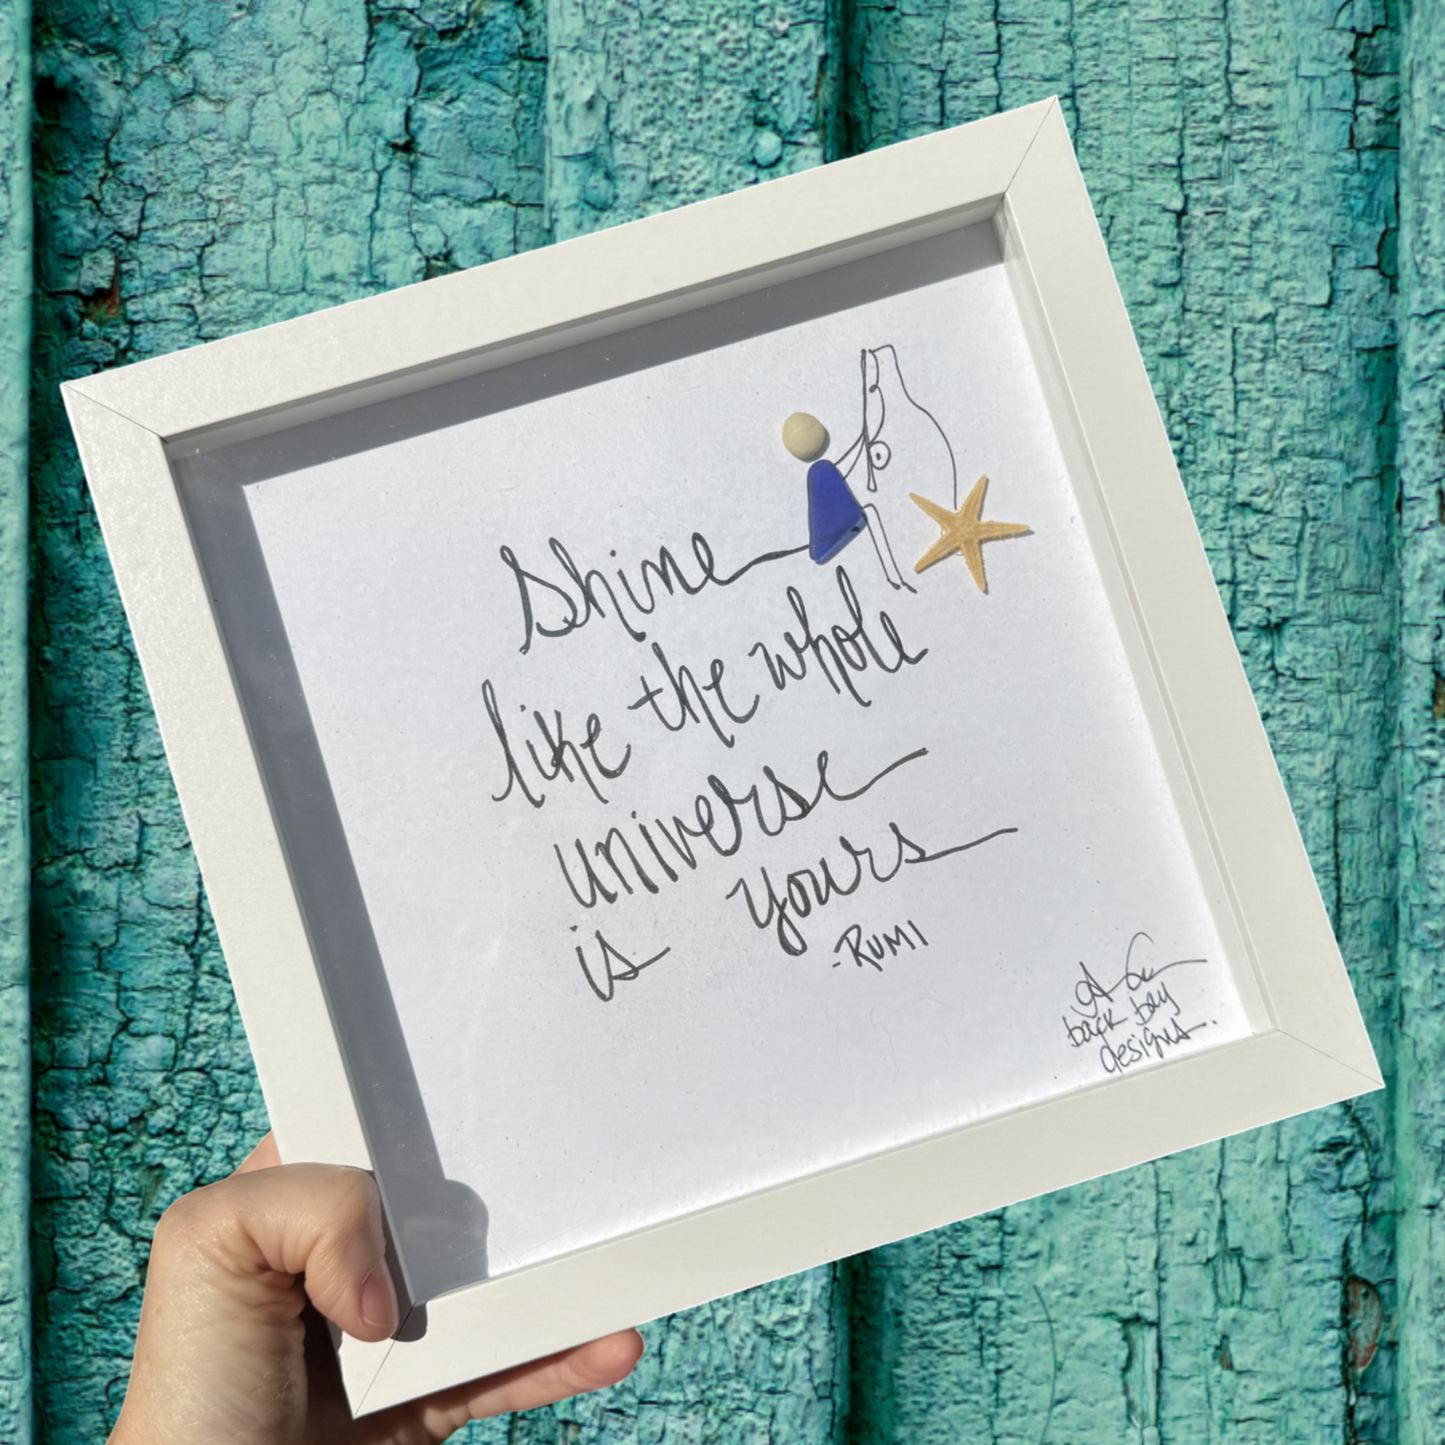 Shine
like the whole
universe
is yours
-RUMI
back bay
designs.